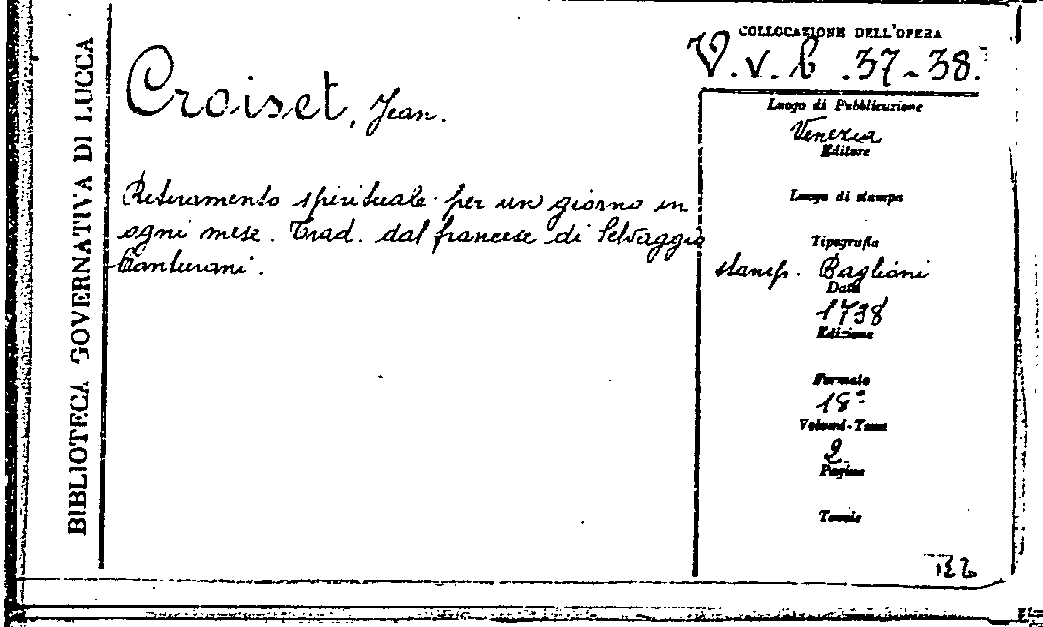 BIBLIOTECA GOVERNATIVA DI LUCCA
Croiset, Jean.
Retiramento spirituale per un giorno in
ogni mese. Trad. dal francese di Selvaggio
Canturani.
COLLOCAZIONE DELL'OPERA
V.v.b.37-38.
Luogo di Pubblicazione
Venezia
Editore
Luogo di stampa
Tipografia
stamp. Baglioni
Data
1738
Edizione
Formato
18º
Volumi-Tomi
2
Pagine
Tavole